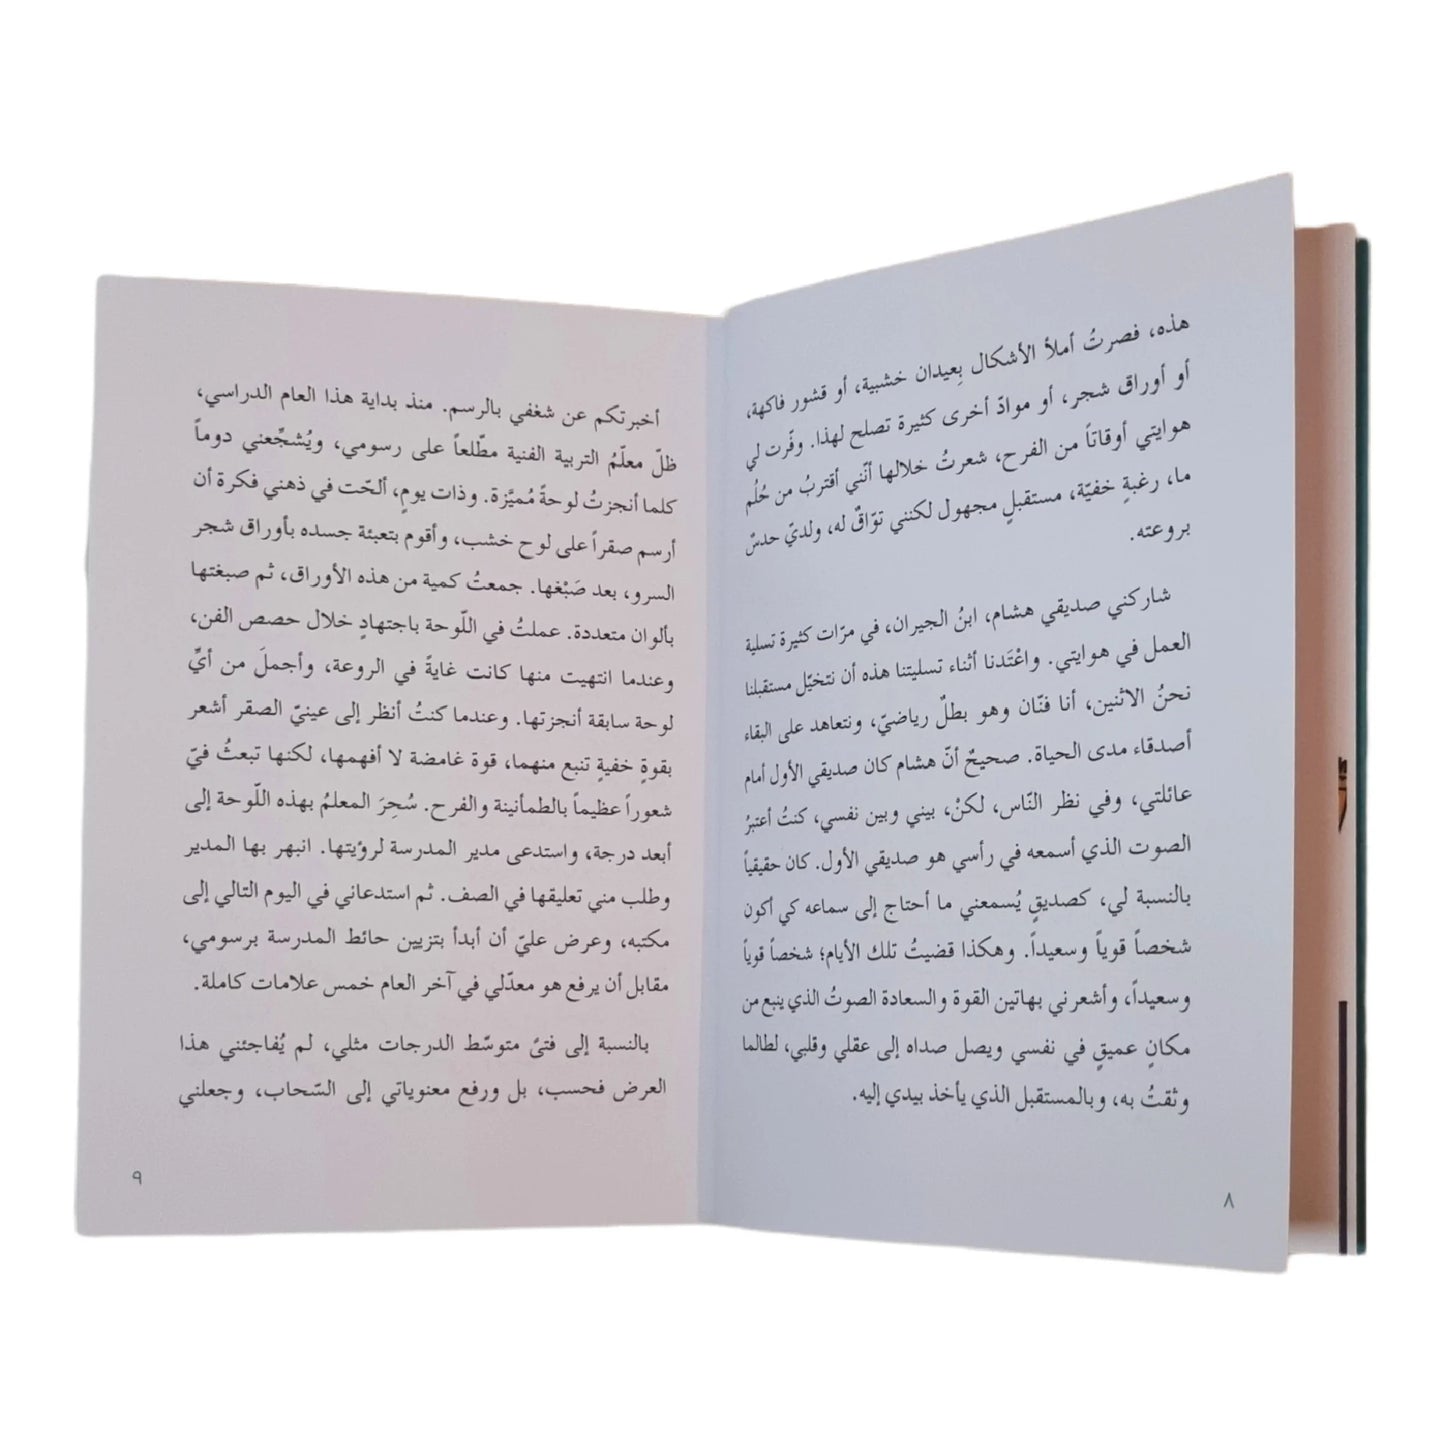 هذه، فصرتُ أملأ الأشكال بِعيدان خشبية، أو قشور فاكهة،
أو أوراق شجر، أو موادّ أخرى كثيرة تصلح لهذا. وفّرت لي
هوايتي أوقاتاً من الفرح، شعرتُ خلالها أنّني أقتربُ من حُلُم
ما، رغبةٍ خفيّة، مستقبلٍ مجهول لكنني توّاقٌ له، ولديّ حدسٌ
بروعته.
شاركني صديقي هشام، ابنُ الجيران، في مرّات كثيرة تسلية
العمل في هوايتي. واعْتَدنا أثناء تسليتنا هذه أن نتخيّل مستقبلنا
نحنُ الاثنين، أنا فنّان وهو بطلٌ رياضيّ، ونتعاهد على البقاء
أصدقاء مدى الحياة. صحيحٌ أنّ هشام كان صديقي الأول أمام
عائلتي، وفي نظر النّاس، لكنْ، بيني وبين نفسي، كنتُ أعتبرُ
الصوت الذي أسمعه في رأسي هو صديقي الأول. كان حقيقياً
بالنسبة لي، كصديقٍ يُسمعني ما أحتاج إلى سماعه كي أكون
شخصاً قوياً وسعيداً. وهكذا قضيتُ تلك الأيام؛ شخصاً قوياً
وسعيداً، وأشعرني بهاتين القوة والسعادة الصوتُ الذي ينبع من
مكانٍ عميقٍ في نفسي ويصل صداه إلى عقلي وقلبي، لطالما
وثقتُ به، وبالمستقبل الذي يأخذ بيدي إليه.
٨
أخبرتكم عن شغفي بالرسم. منذ بداية هذا العام الدراسي،
ظلّ معلّمُ التربية الفنية مطّلعاً على رسومي، ويُشجِّعني دوماً
كلما أنجزتُ لوحةً مُميَّزة. وذات يومٍ، ألحّت في ذهني فكرة أن
أرسم صقراً على لوح خشب، وأقوم بتعبئة جسده بأوراق شجر
السرو، بعد صَبْغها. جمعتُ كمية من هذه الأوراق، ثم صبغتها
بألوان متعددة. عملتُ في اللّوحة باجتهادٍ خلال حصص الفن،
وعندما انتهيت منها كانت غايةً في الروعة، وأجملَ من أيِّ
لوحة سابقة أنجزتها. وعندما كنتُ أنظر إلى عينيّ الصقر أشعر
بقوةٍ خفيةٍ تنبع منهما، قوة غامضة لا أفهمها، لكنها تبعثُ فيّ
شعوراً عظيماً بالطمأنينة والفرح. سُحِرَ المعلمُ بهذه اللّوحة إلى
أبعد درجة، واستدعى مدير المدرسة لرؤيتها. انبهر بها المدير
وطلب مني تعليقها في الصف. ثم استدعاني في اليوم التالي إلى
مكتبه، وعرض عليّ أن أبدأ بتزيين حائط المدرسة برسومي،
مقابل أن يرفع هو معدّلي في آخر العام خمس علامات كاملة.
بالنسبة إلى فتىً متوسّط الدرجات مثلي، لم يُفاجئني هذا
العرض فحسب، بل ورفع معنوياتي إلى السّحاب، وجعلني
٩